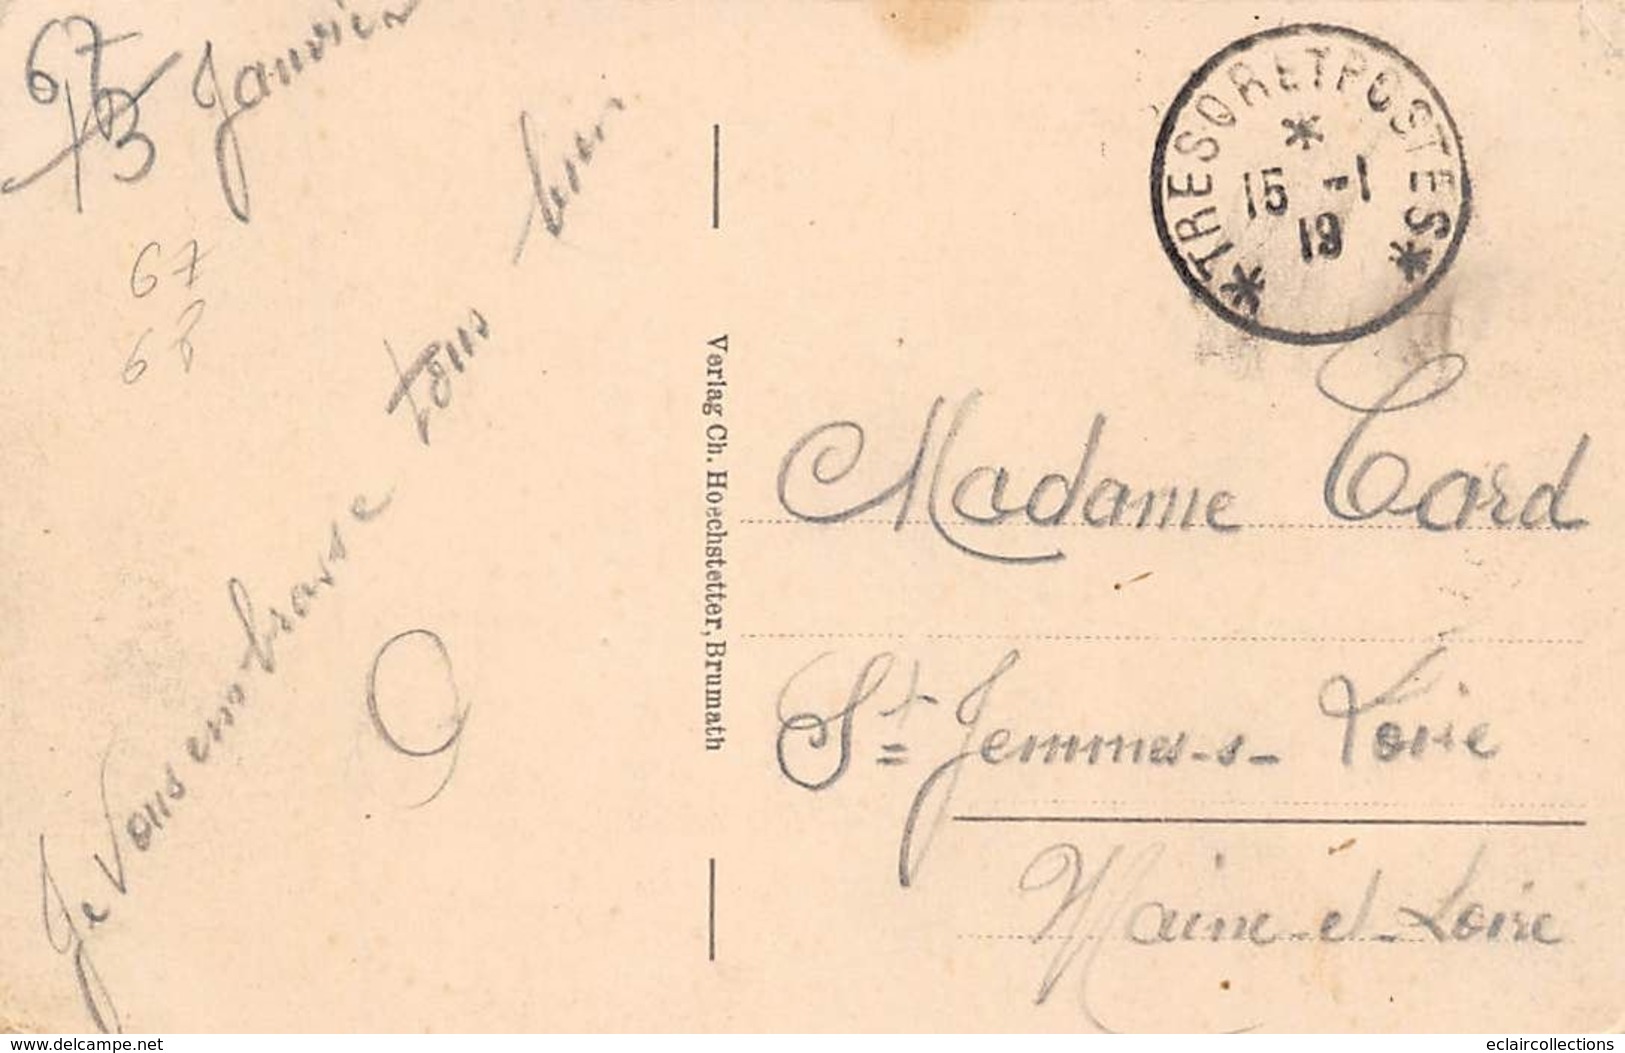 67
13 Janvier
67
68
Je Vous embrasse tous bien
Verlag Ch. Hoechstetter, Brumath
TRESOR ET POSTES
15 -1
19
Madame Card
St Jemmes-s- Loire
Maine-et-Loire
delcampe.net
eclaircollections